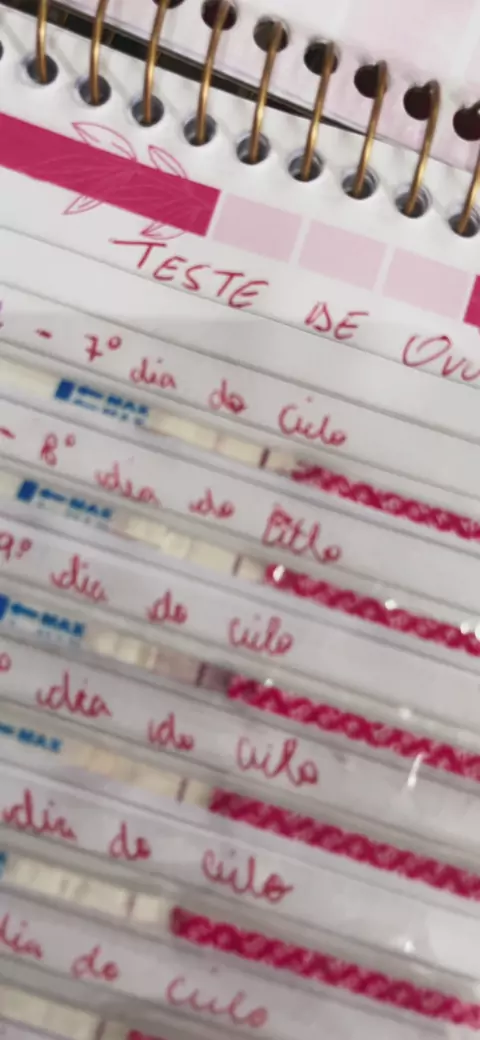 TESTE DE OVU
- 7º dia do ciclo
MAX
- 8º dia do ciclo
MAX
9º dia do ciclo
MAX
º dia do ciclo
MAX
dia do ciclo
dia do ciclo